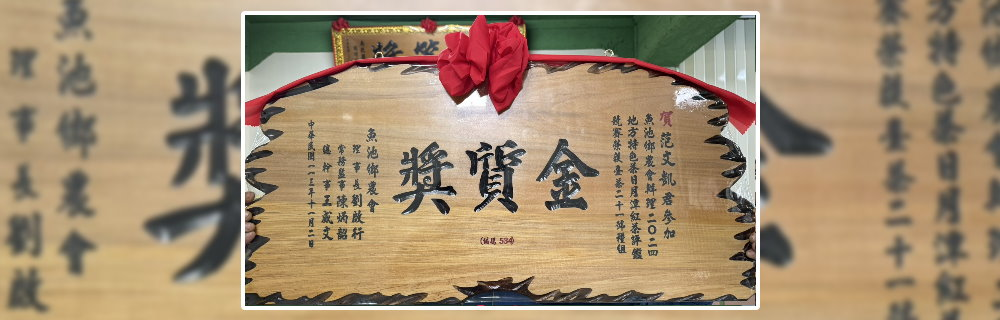 賀范文凱君參加
魚池鄉農會辦理二〇二四
地方特色茶日月潭紅茶評鑑
競賽榮獲臺茶二十一號種組
金質獎
(編號 534)
魚池鄉農會
理事長劉啟行
常務監事陳炳韶
總幹事王威文
中華民國一一三年十一月二日